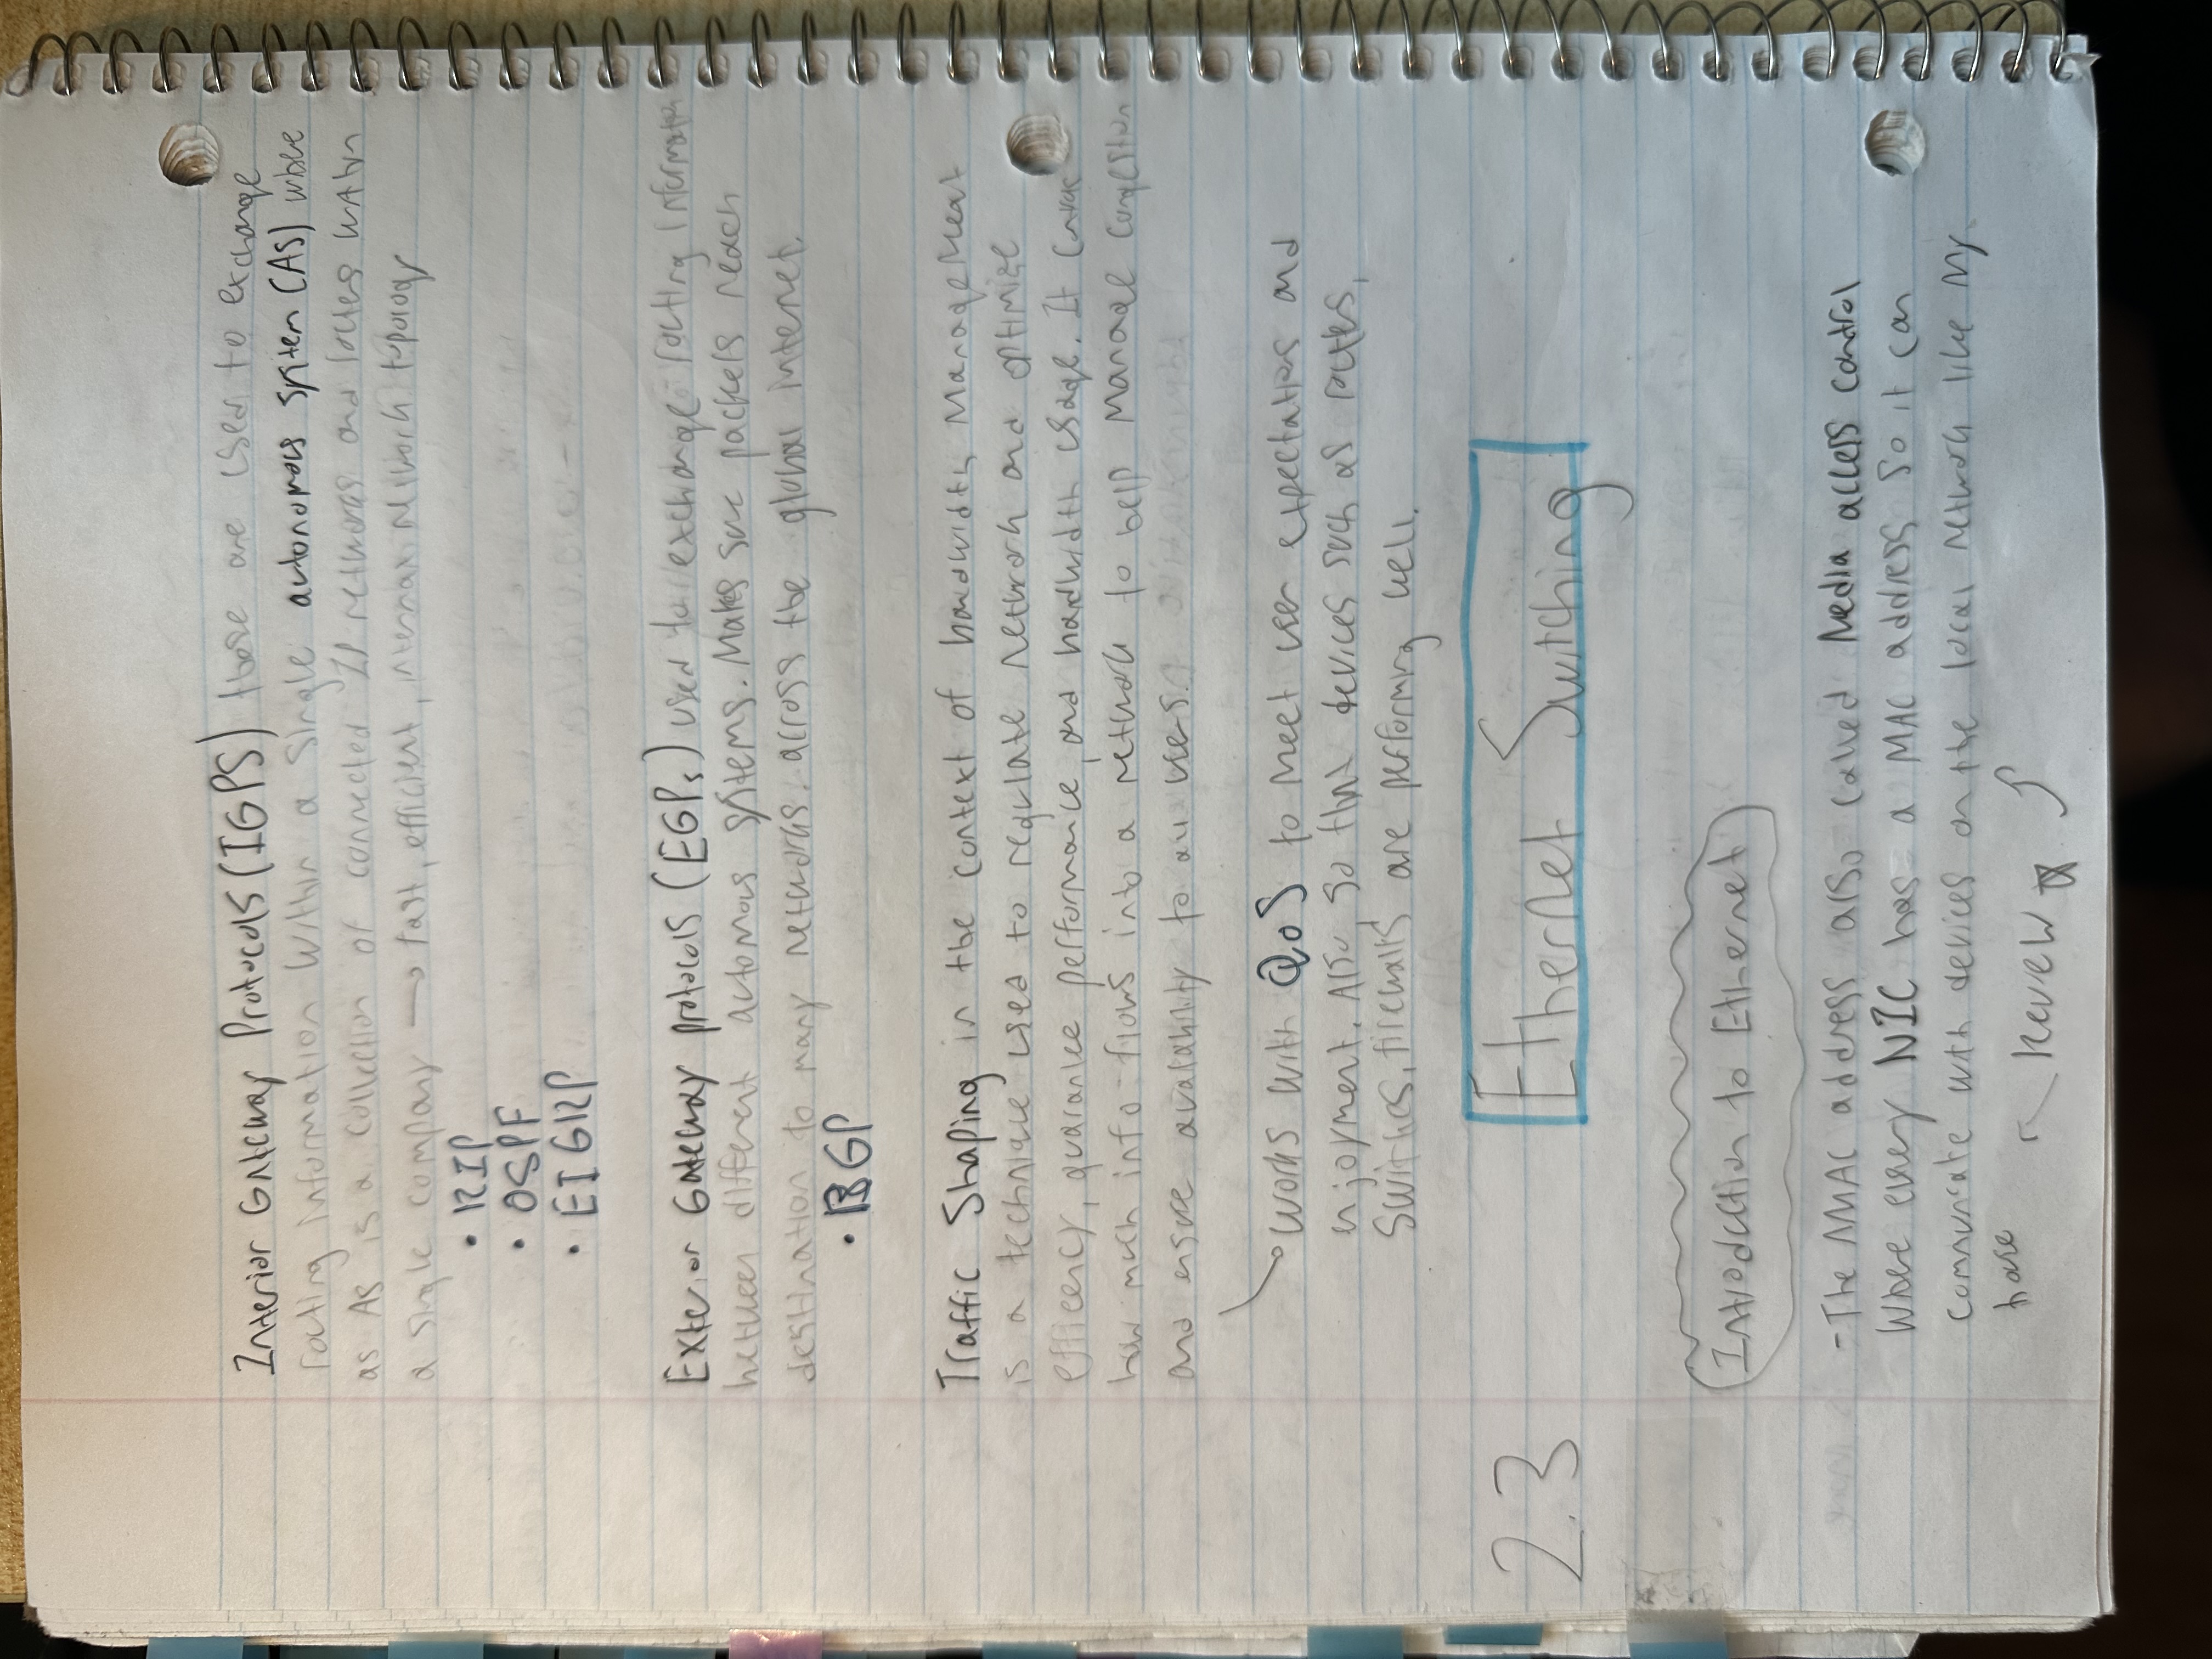 Interior Gateway Protocols (IGPS) these are used to exchange
routing information within a single autonomous system (AS) where
as AS is a collection of connected IP networks and routers within
a single company → fast, efficient, internal network topology
• RIP
• OSPF
• EIGRP
Exterior Gateway protocols (EGPs) used to exchange routing information
between different automous systems. Makes sure packets reach
destination to many networks. across the global internet.
• BGP
Traffic Shaping in the context of bandwidth management
is a technique used to regulate network and optimize
efficency, quarantee performance, and bandwidth usage. It controls
how much info flows into a network to help manage congestion
and ensure availability to all users.
works with QoS to meet user expectations and
enjoyment. Also, so that devices such as routers,
switches, firewalls are performing well.
2.3 Ethernet Switching
Introduction to Ethernet
- The MAC address also called Media access control
where every NIC has a MAC address so it can
communicate with devices on the local network like my
house
Review